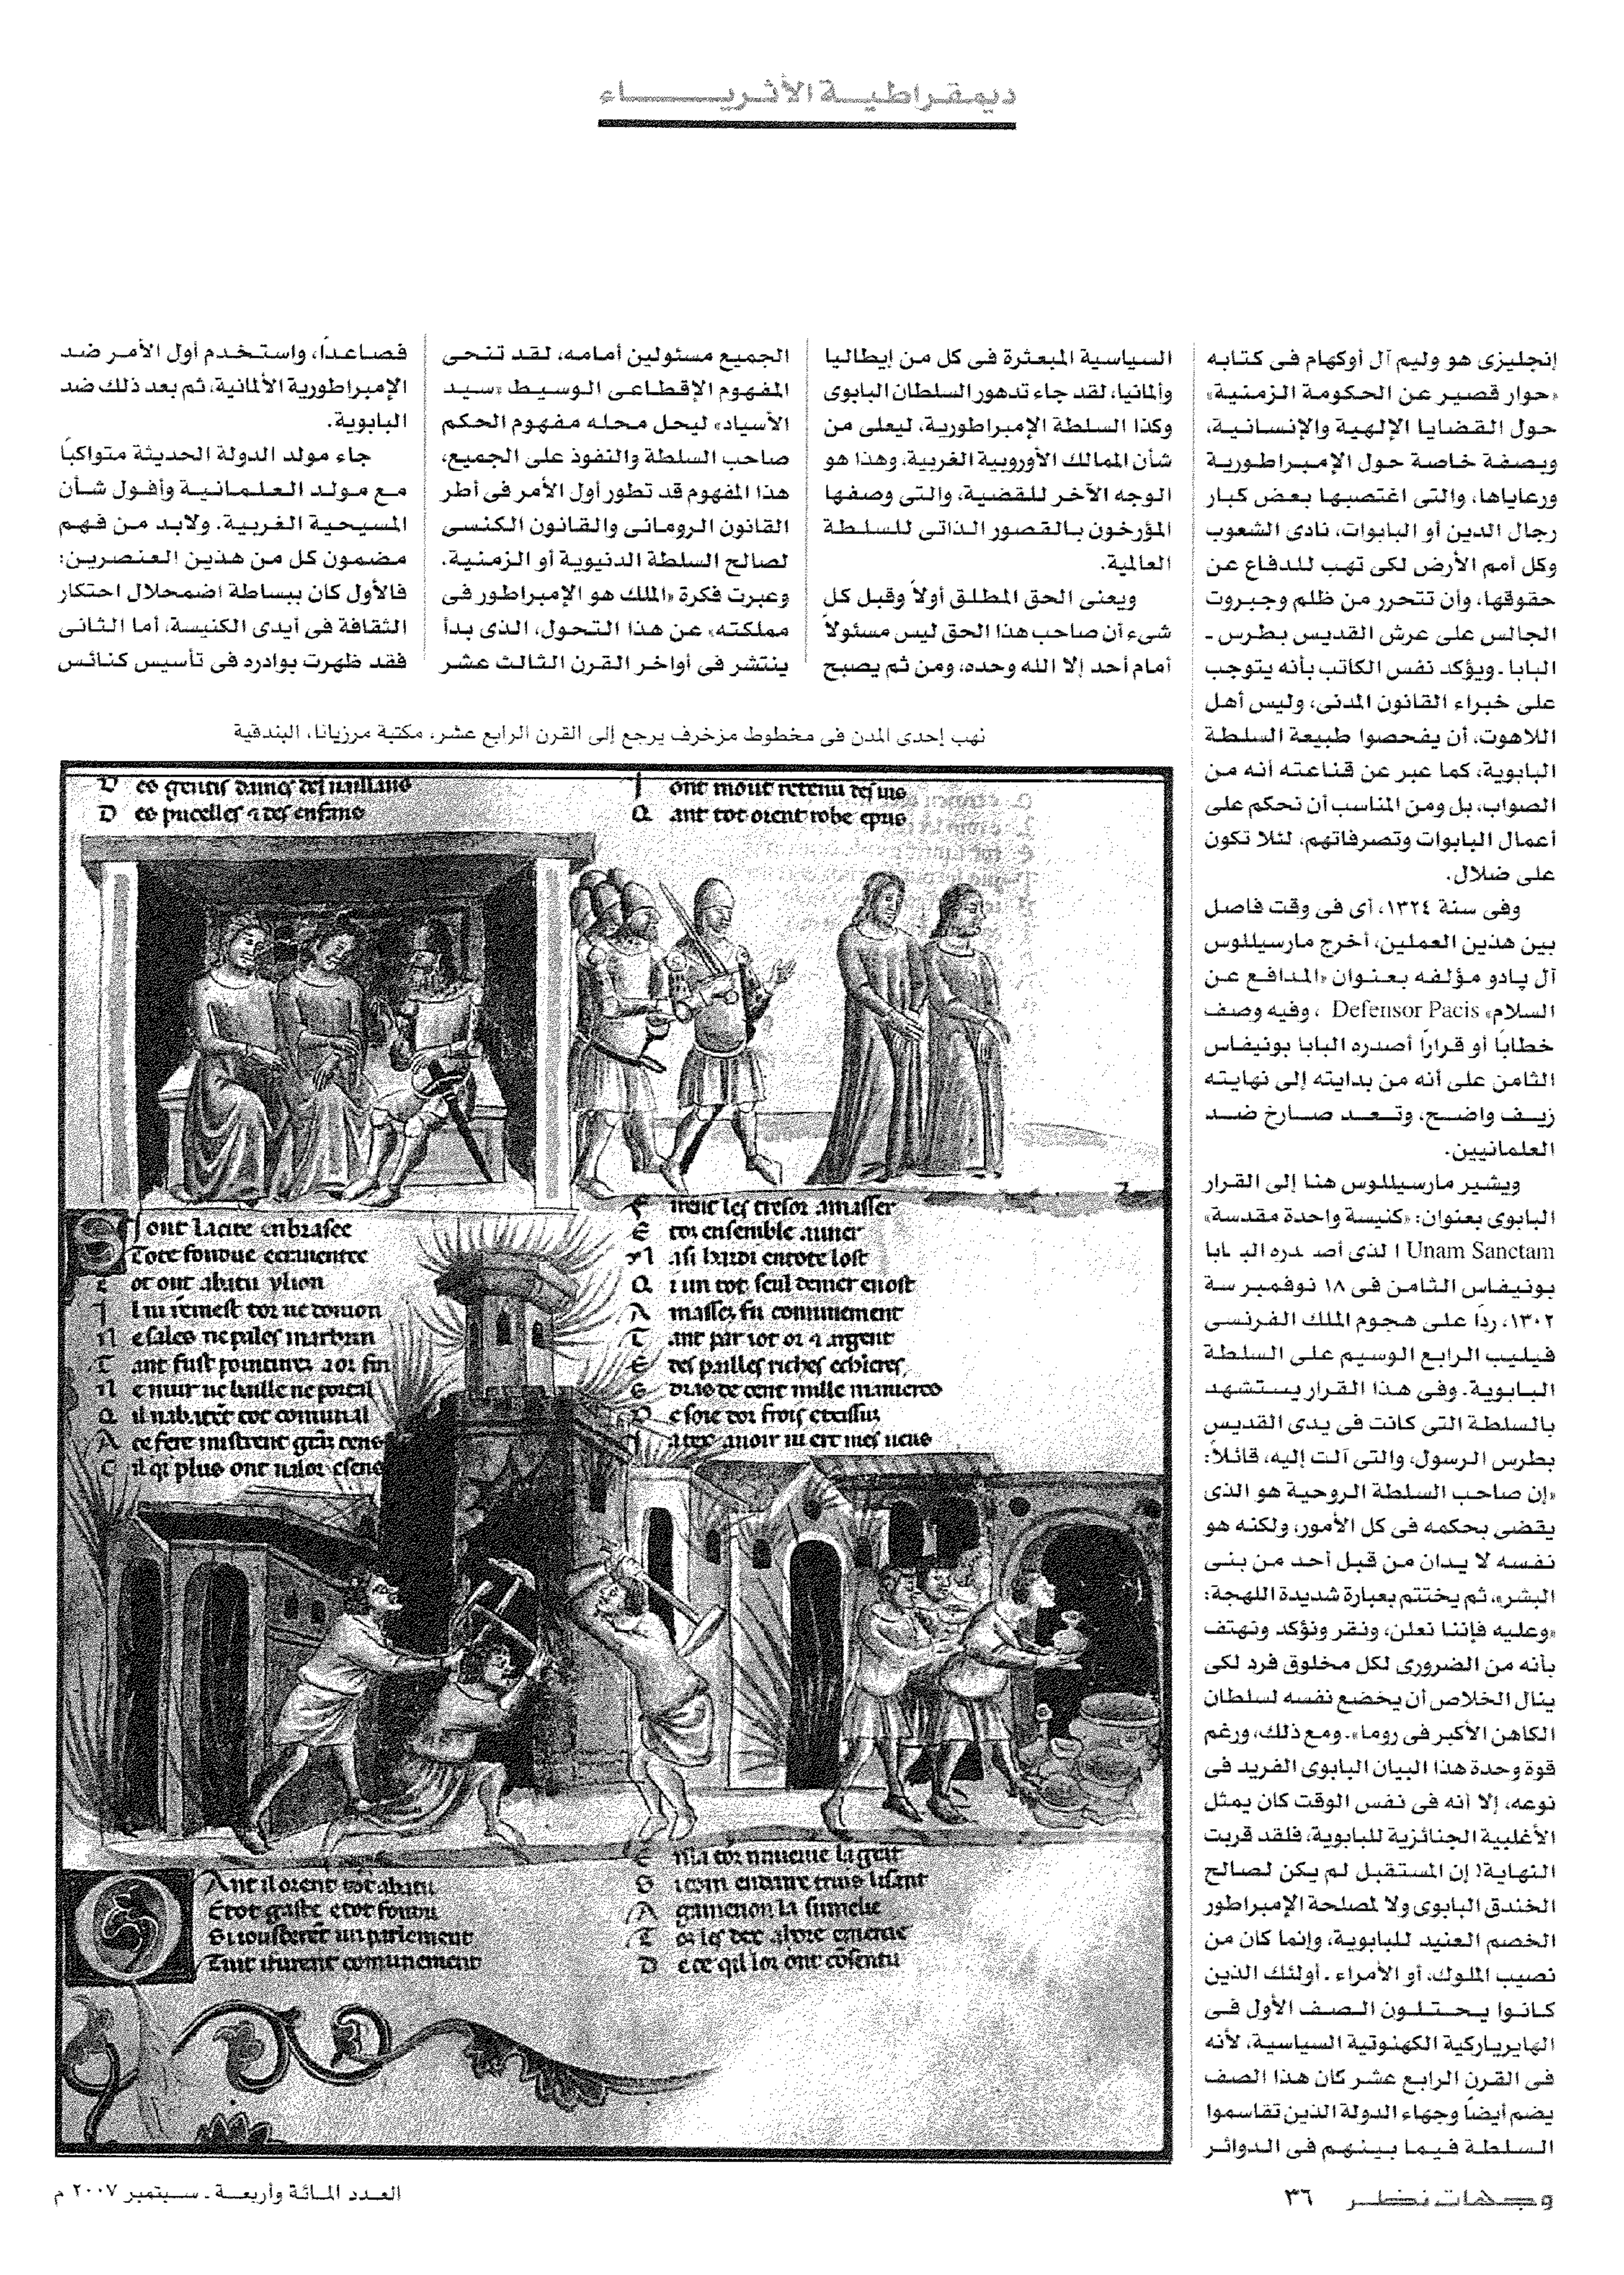 ديمقراطية الأثرياء
إنجليزى هو وليم آل أوكهام فى كتابه
«حوار قصير عن الحكومة الزمنية»
حول القضايا الإلهية والإنسانية،
وبصفة خاصة حول الإمبراطورية
ورعاياها، والتى اغتصبها بعض كبار
رجال الدين أو البابوات، نادى الشعوب
وكل أمم الأرض لكى تهب للدفاع عن
حقوقها، وأن تتحرر من ظلم وجبروت
الجالس على عرش القديس بطرس ـ
البابا ـ ويؤكد نفس الكاتب بأنه يتوجب
على خبراء القانون المدنى، وليس أهل
اللاهوت، أن يفحصوا طبيعة السلطة
البابوية، كما عبر عن قناعته أنه من
الصواب، بل ومن المناسب أن نحكم على
أعمال البابوات وتصرفاتهم، لئلا تكون
على ضلال.
وفى سنة ١٣٢٤، أى فى وقت فاصل
بين هذين العملين، أخرج مارسيللوس
آل پادو مؤلفه بعنوان «المدافع عن
السلام» Defensor Pacis ، وفيه وصف
خطابًا أو قرارًا أصدره البابا بونيفاس
الثامن على أنه من بدايته إلى نهايته
زيف واضح، وتعد صارخ ضد
العلمانيين.
ويشير مارسيللوس هنا إلى القرار
البابوى بعنوان: «كنيسة واحدة مقدسة»
Unam Sanctam الذى أصدره البابا
بونيفاس الثامن فى ١٨ نوفمبر سة
١٣٠٢، ردًا على هجوم الملك الفرنسى
فيليب الرابع الوسيم على السلطة
البابوية. وفى هذا القرار يستشهد
بالسلطة التى كانت فى يدى القديس
بطرس الرسول، والتى آلت إليه، قائلاً:
«إن صاحب السلطة الروحية هو الذى
يقضى بحكمه فى كل الأمور، ولكنه هو
نفسه لا يدان من قبل أحد من بنى
البشر»، ثم يختتم بعبارة شديدة اللهجة:
«وعليه فإننا نعلن، ونقر ونؤكد ونهتف
بأنه من الضرورى لكل مخلوق فرد لكى
ينال الخلاص أن يخضع نفسه لسلطان
الكاهن الأكبر فى روما». ومع ذلك، ورغم
قوة وحدة هذا البيان البابوى الفريد فى
نوعه، إلا أنه فى نفس الوقت كان يمثل
الأغلبية الجنائزية للبابوية، فلقد قربت
النهاية! إن المستقبل لم يكن لصالح
الخندق البابوى ولا لمصلحة الإمبراطور
الخصم العنيد للبابوية، وإنما كان من
نصيب الملوك، أو الأمراء ـ أولئك الذين
كانوا يحتلون الصف الأول فى
الهايرياركية الكهنوتية السياسية، لأنه
فى القرن الرابع عشر كان هذا الصف
يضم أيضًا وجهاء الدولة الذين تقاسموا
السلطة فيما بينهم فى الدوائر
السياسية المبعثرة فى كل من إيطاليا
وألمانيا، لقد جاء تدهور السلطان البابوى
وكذا السلطة الإمبراطورية، ليعلى من
شأن الممالك الأوروبية الغربية، وهذا هو
الوجه الآخر للقضية، والتى وصفها
المؤرخون بالقصور الذاتى للسلطة
العالمية.
ويعنى الحق المطلق أولاً وقبل كل
شىء أن صاحب هذا الحق ليس مسئولاً
أمام أحد إلا الله وحده، ومن ثم يصبح
الجميع مسئولين أمامه، لقد تنحى
المفهوم الإقطاعى الوسيط «سيد
الأسياد» ليحل محله مفهوم الحكم
صاحب السلطة والنفوذ على الجميع،
هذا المفهوم قد تطور أول الأمر فى أطر
القانون الرومانى والقانون الكنسى
لصالح السلطة الدنيوية أو الزمنية.
وعبرت فكرة «الملك هو الإمبراطور فى
مملكته» عن هذا التحول، الذى بدأ
ينتشر فى أواخر القرن الثالث عشر
فصاعدًا، واستخدم أول الأمر ضد
الإمبراطورية الألمانية، ثم بعد ذلك ضد
البابوية.
جاء مولد الدولة الحديثة متواكبًا
مع مولد العلمانية وأفول شأن
المسيحية الغربية. ولابد من فهم
مضمون كل من هذين العنصرين:
فالأول كان ببساطة اضمحلال احتكار
الثقافة فى أيدى الكنيسة، أما الثانى
فقد ظهرت بوادره فى تأسيس كنائس
نهب إحدى المدن فى مخطوط مزخرف يرجع إلى القرن الرابع عشر، مكتبة مرزيانا، البندقية
D es pucelles
Q ant tot orent robe
S i ont la cite enbrasee
T ant par tot or argent
وجهات نظر ٣٦
العدد المائة وأربعة ـ سبتمبر ٢٠٠٧ م